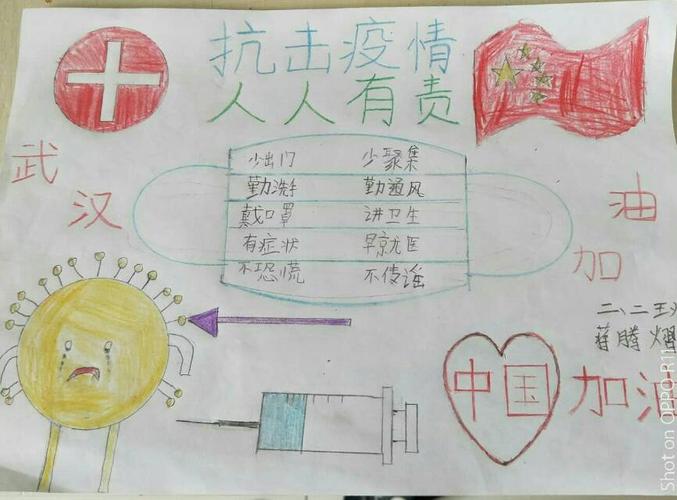 抗击疫情
人人有责
武汉
少出门 少聚集
勤洗手 勤通风
戴口罩 讲卫生
有症状 早就医
不恐慌 不传谣
加油
二、二
蒋腾熠
中国加油
Shot on OPPO R11